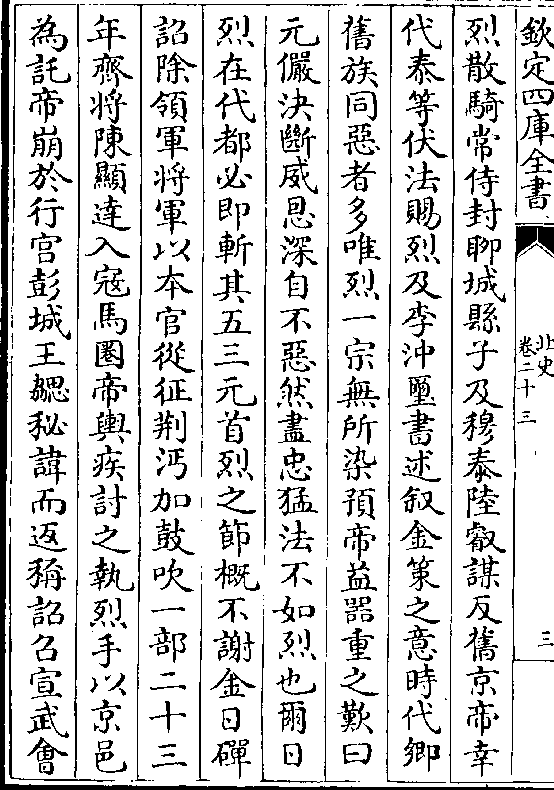 欽定四庫全書
北史
卷二十三
三
烈散騎常侍封聊城縣子及穆泰陸叡謀反舊京帝幸
代泰等伏法賜烈及李沖璽書述叙金策之意時代鄉
舊族同惡者多唯烈一宗無所染預帝益器重之歎曰
元儼決斷威恩深自不惡然盡忠猛法不如烈也爾日
烈在代都必即斬其五三元首烈之節概不謝金日磾
詔除領軍將軍以本官從征荆沔加鼓吹一部二十三
年齊將陳顯達入寇馬圏帝輿疾討之執烈手以京邑
為託帝崩於行宫彭城王勰秘諱而返稱詔召宣武會